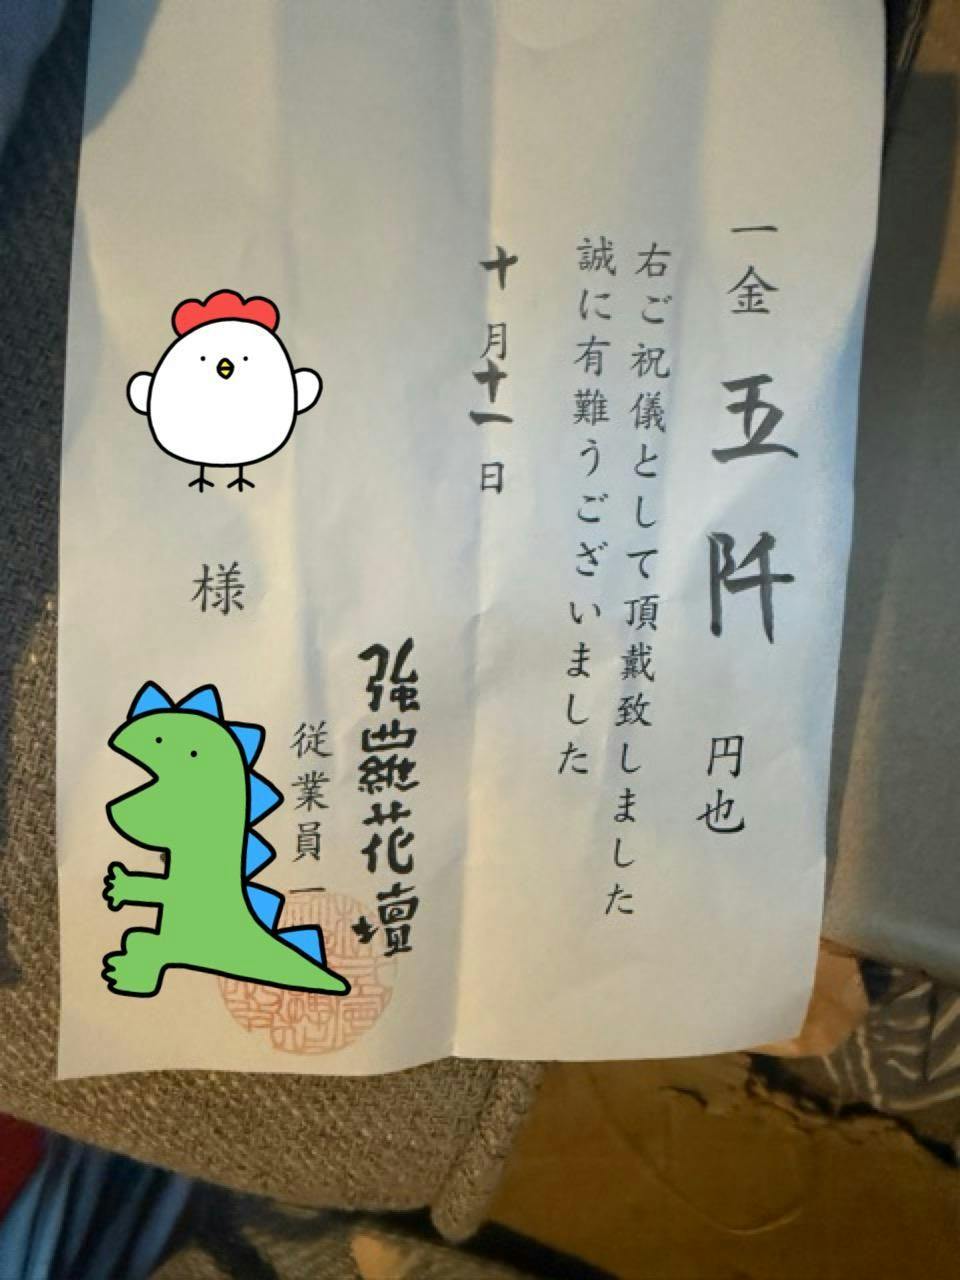 一金 五阡 円也
右ご祝儀として頂戴致しました
誠に有難うございました
十月十一日
強羅花壇
従業員一
様